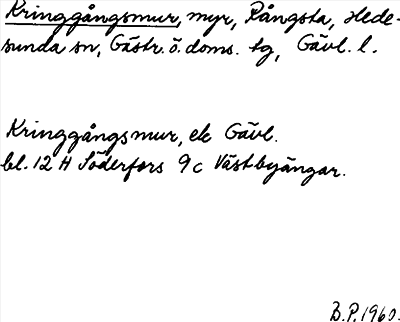 Kringgångsmur, myr, Rångsta, Hede-
sunda sn, Gästr. ö. doms. tg, Gävl. l.
Kringgångsmur, ek Gävl.
bl. 12 H Söderfors 9 c Västbyängar.
B.P. 1960.